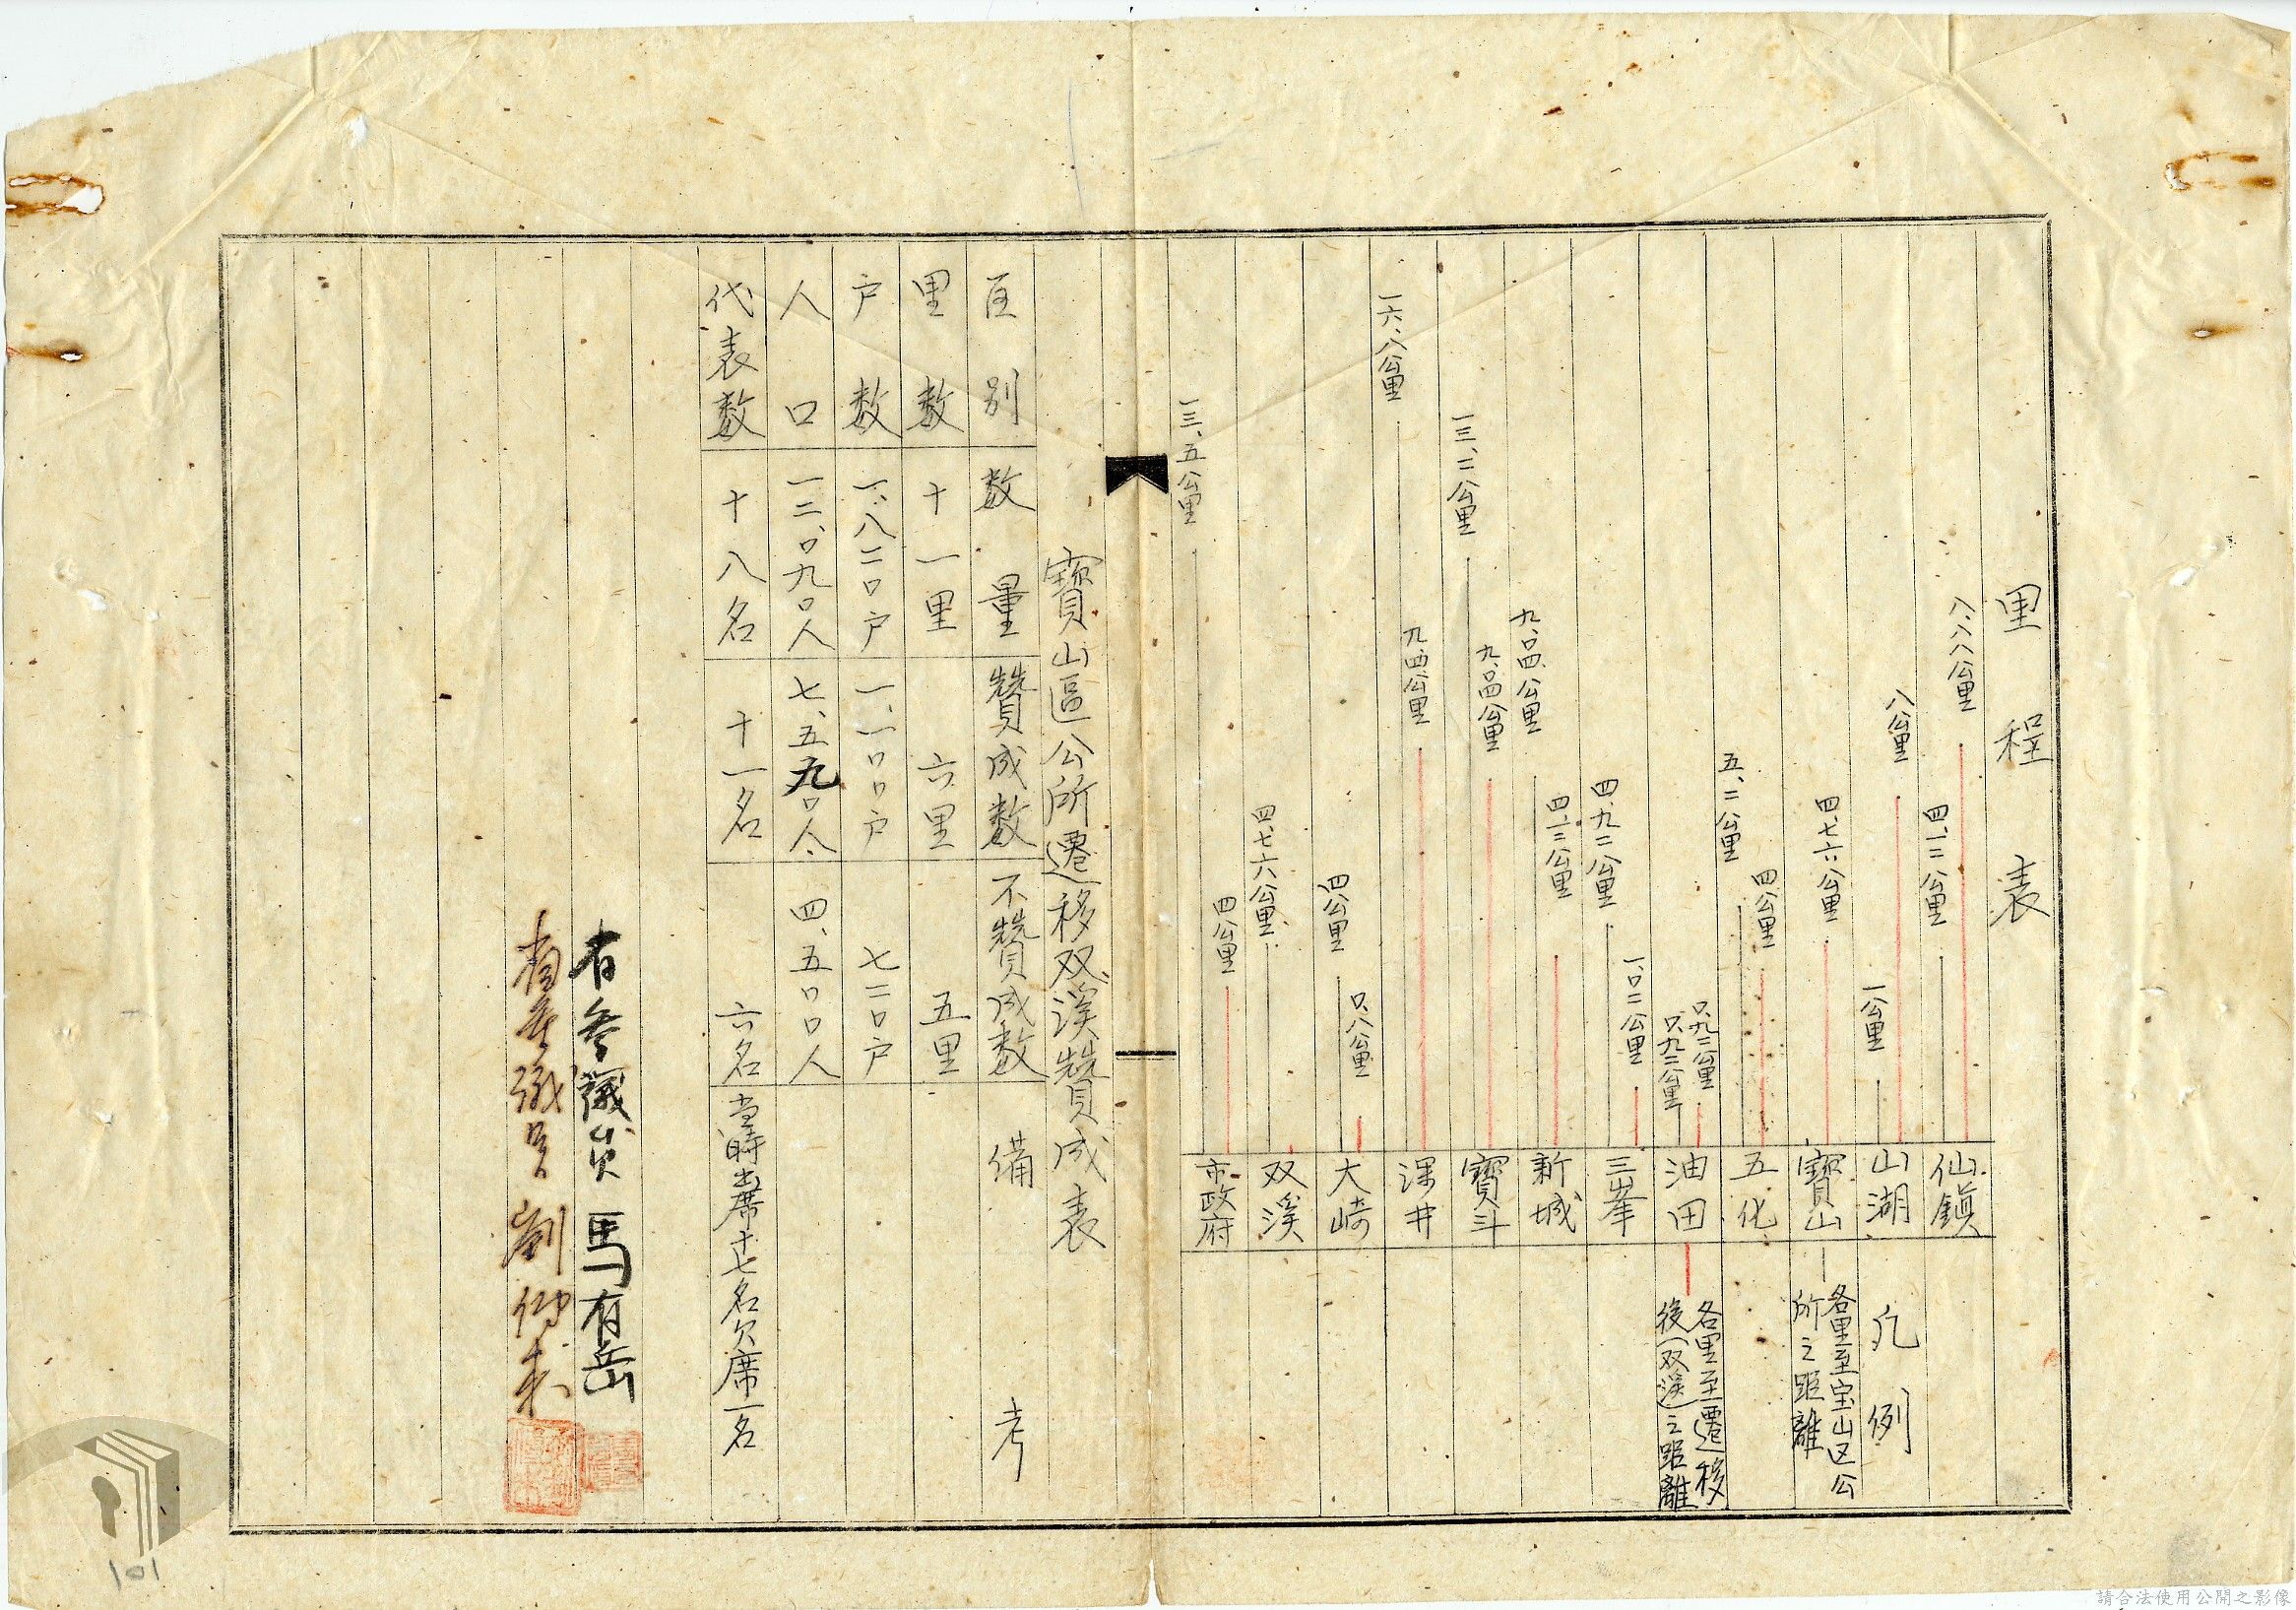 里程表
八.八八公里
四.一二公里
仙鎭
八公里
一公里
山湖
凡例
四.七六公里
寶山
各里至宝山区公
所之距離
四公里
五.二公里
五化
〇.九二公里
〇.九二公里
油田
各里至遷移
後(双溪)之距離
一.〇二公里
四.九二公里
三峯
四.三二公里
九.〇四公里
新城
九.〇四公里
一三.二公里
寶斗
九.四公里
一六.八公里
深井
〇.八公里
四公里
大崎
四.七六公里
双溪
四公里
一三.五公里
市政府
寶山區公所遷移双溪贊成表
区別 数量 贊成数 不贊成数 備考
里数 十一里 六里 五里
户数 一.八二〇户 一.一〇〇户 七二〇户
人口 一二.〇九〇人 七.五九〇人 四.五〇〇人
代表数 十八名 十一名 六名 当時出席十七名欠席一名
有 馬有岳
劉
101
請合法使用公開之影像